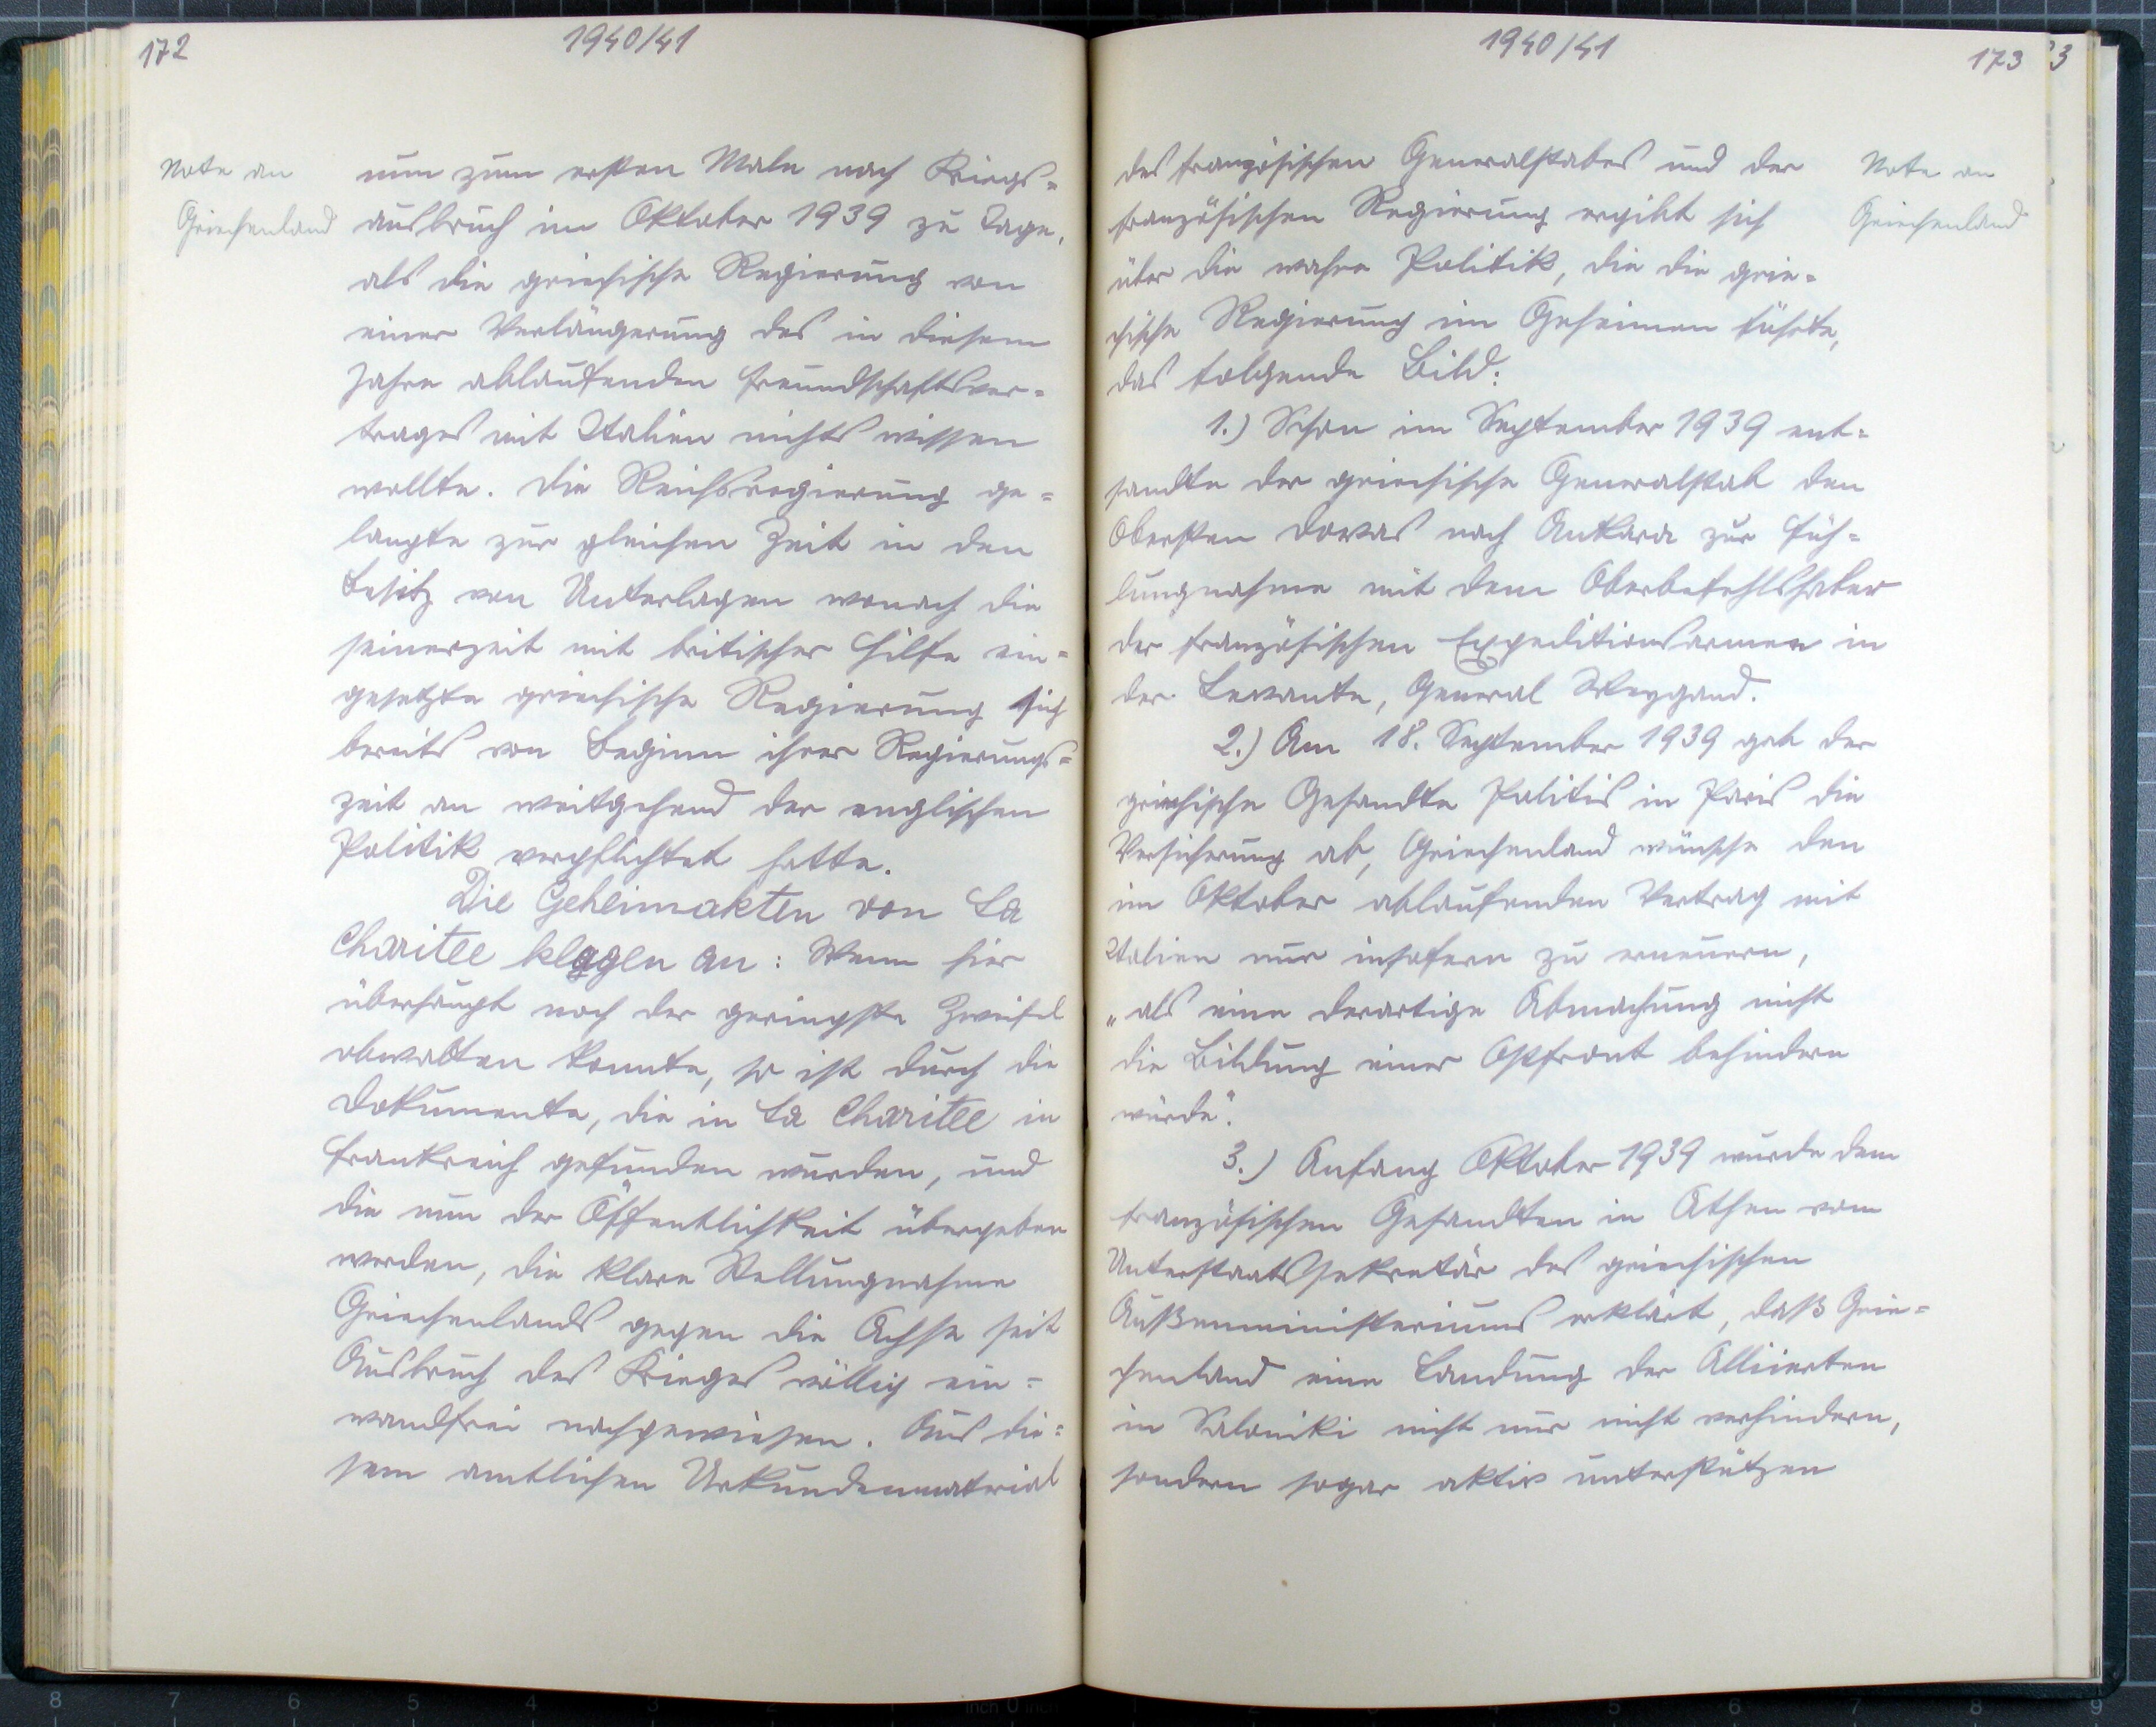 172
1940/41
Note an
Griechenland
nun zum ersten Male nach Kriegs=
ausbruch im Oktober 1939 zu Tage,
als die griechische Regierung von
einer Verlängerung des in diesem
Jahre ablaufenden Freundschaftsver=
trages mit Italien nichts wissen
wollte. Die Reichsregierung ge=
langte zur gleichen Zeit in den
Besitz von Unterlagen wonach die
seinerzeit mit britischer Hilfe ein=
gesetzte griechische Regierung sich
bereits von Beginn ihrer Regierungs=
zeit an weitgehend der englischen
Politik verpflichtet hatte.
Die Geheimakten von La
Charitee klagen an: Wenn hier
überhaupt noch der geringste Zweifel
obwalten konnte, so ist durch die
Dokumente, die in La Charitee in
Frankreich gefunden wurden, und
die nun der Öffentlichkeit übergeben
werden, die klare Stellungnahme
Griechenlands gegen die Achse seit
Ausbruch des Krieges völlig ein=
wandfrei nachgewiesen. Aus die=
sem amtlichen Urkundenmatrial
1940/41
173
Note an
Griechenland
des französischen Generalstabes und der
französischen Regierung ergibt sich
über die wahre Politik, die die grie=
chische Regierung im Geheimen führte,
das folgende Bild:
1.) Schon im September 1939 ent=
sandte der griechische Generalstab den
Obersten Dovas nach Ankara zur Füh=
lungnahme mit dem Oberbefehlshaber
der französischen Expeditionsarmee in
der Levante, General Weygand.
2.) Am 18. September 1939 gab der
griechische Gesandte Politis in Paris die
Versicherung ab, Griechenland wünsche den
im Oktober ablaufenden Vertrag mit
Italien nur insofern zu erneuern,
„als eine derartige Abmachung nicht
die Bildung einer Ostfront behindern
würde".
3.) Anfang Oktober 1939 wurde dem
französischen Gesandten in Athen vom
Unterstaatssekretär des griechischen
Außenministeriums erklärt, daß Grie=
chenland eine Landung der Alliierten
in Saloniki nicht nur nicht verhindern,
sondern sogar aktiv unterstützen